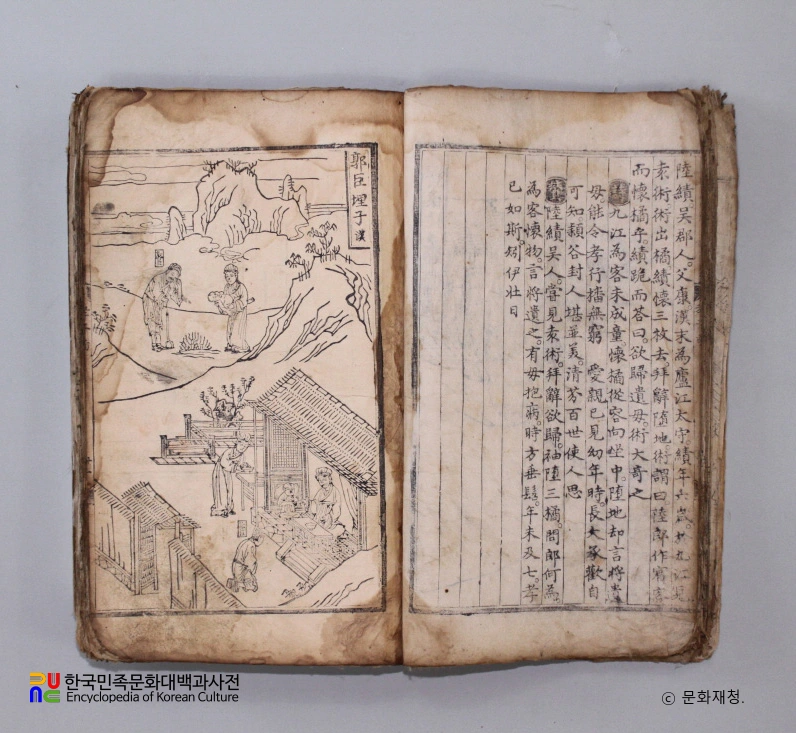 陸績吳郡人。父康漢末為廬江太守績年六歲。於九江見
袁術術出橘績懷三枚去拜辭墮地術謂曰陸郎作賓客
而懷橘乎。績跪而答曰欲歸遺母。術大奇之
九江為客未成童懷橘從容向坐中。墮地却言將遺
母能令孝行播無窮 愛親已見幼年時。長大承歡自
可知。穎谷封人堪並美。清芬百世使人思
陸績吳人。嘗見袁術。拜辭欲歸。袖墮三橘。問郎何為
為客懷物。言將遺之。有母抱病。時方垂髫。年未及七。孝
已如斯。矧伊壯日
郭巨埋子 漢
한국민족문화대백과사전
Encyclopedia of Korean Culture
ⓒ 문화재청.